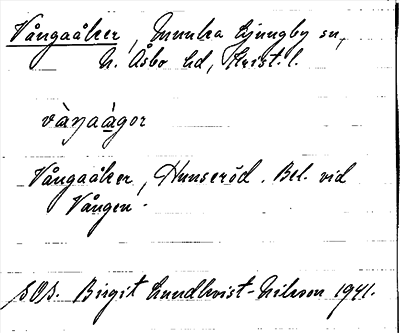 Vångaåker, Munka Ljungby sn,
N. Åsbo hd, Krist. l.
vàŋaágor
Vångaåker, Hunseröd. Bel. vid
Vången.
SOS. Birgit Lundkvist-Nilsson 1941.